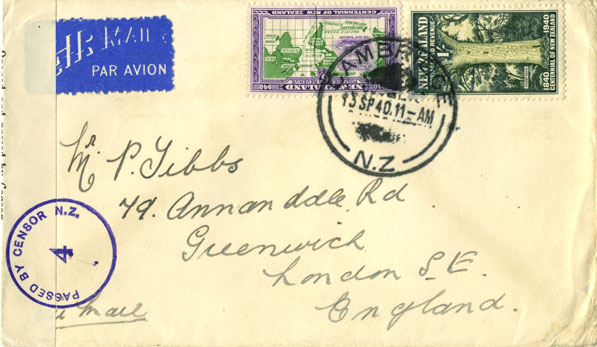 AIR MAIL
PAR AVION
CENTENNIAL OF NEW ZEALAND
NEW ZEALAND
1940
NEW ZEALAND
1/-
POSTAGE & REVENUE
1840 CENTENNIAL OF NEW ZEALAND 1940
CAMBRIDGE
13 SP 40. 11-AM
N.Z.
Mr P. Gibbs
79. Annandale Rd.
Greenwich
London S.E.
England.
PASSED BY CENSOR N.Z.
4
mail